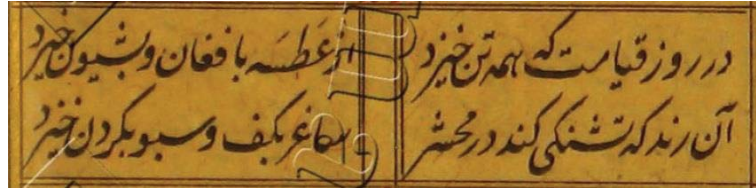 در روز قیامت که همه تن خیزد
از عَطسَه با فغان و بشیون خیزد
آن رند که تشنگی کند در محشر
ساغر بکف و سبو بگردن خیزد